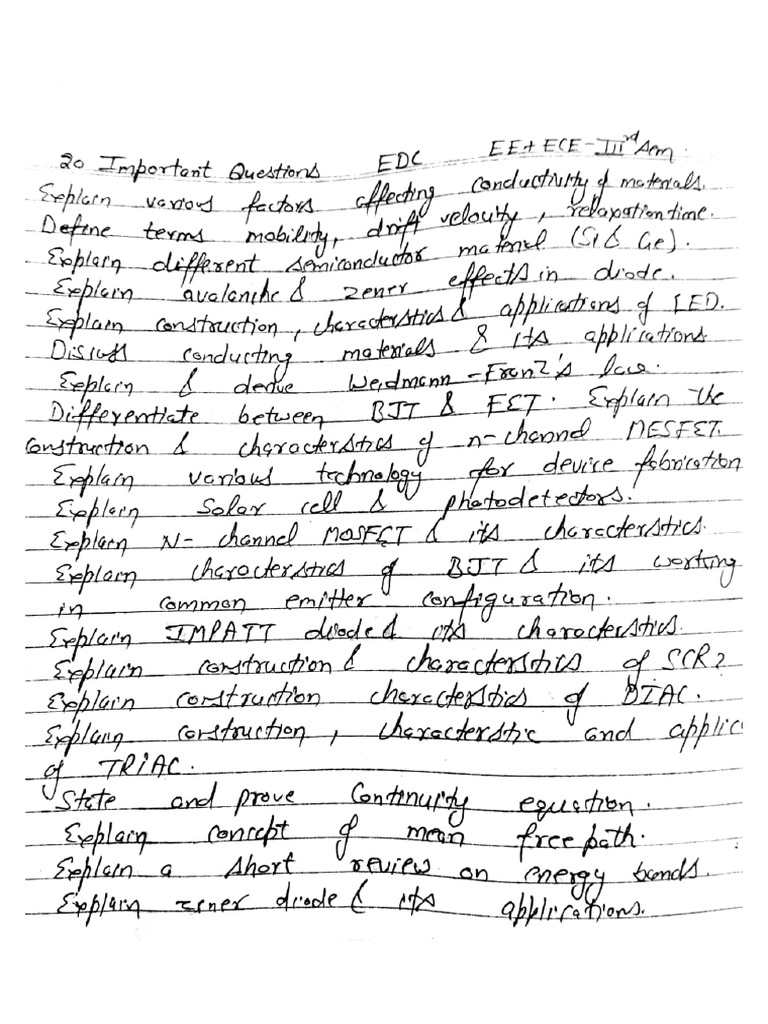 20 Important Questions EDC EE+ ECE-IIIrd Sem
Explain various factors affecting conductivity of materials.
Define terms mobility, drift velocity, relaxation time.
Explain different semiconductor material (Si & Ge).
Explain avalanche & zener effects in diode.
Explain construction, characterstics & applications of LED.
Discuss conducting materials & its applications.
Explain & derive Weidmann-Franz's law.
Differentiate between BJT & FET. Explain the
construction & characterstics of n-channel MESFET.
Explain various technology for device fabrication
Explain solar cell & photodetectors.
Explain N- channel MOSFET & its characterstics.
Explain characterstics of BJT & its working
in common emitter configuration.
Explain IMPATT diode & its characterstics.
Explain construction & characterstics of SCR?
Explain construction characterstics of DIAC.
Explain construction, characterstic and applic
of TRIAC.
State and prove Continuity equation.
Explain concept of mean free path.
Explain a short review on energy bands.
Explain zener diode & its applications.